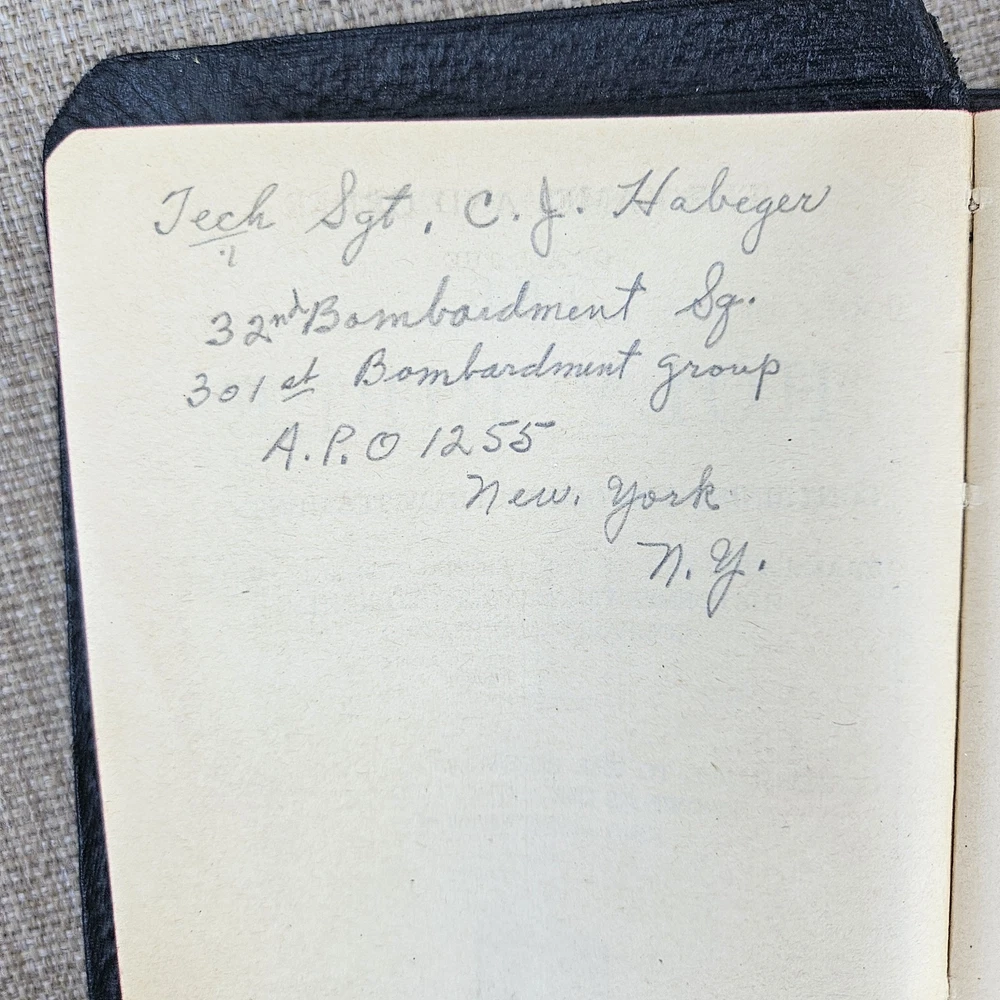 Tech Sgt. C. J. Habeger
32nd Bombardment Sq.
301st Bombardment group
A.P.O 1255
New. York
N.Y.